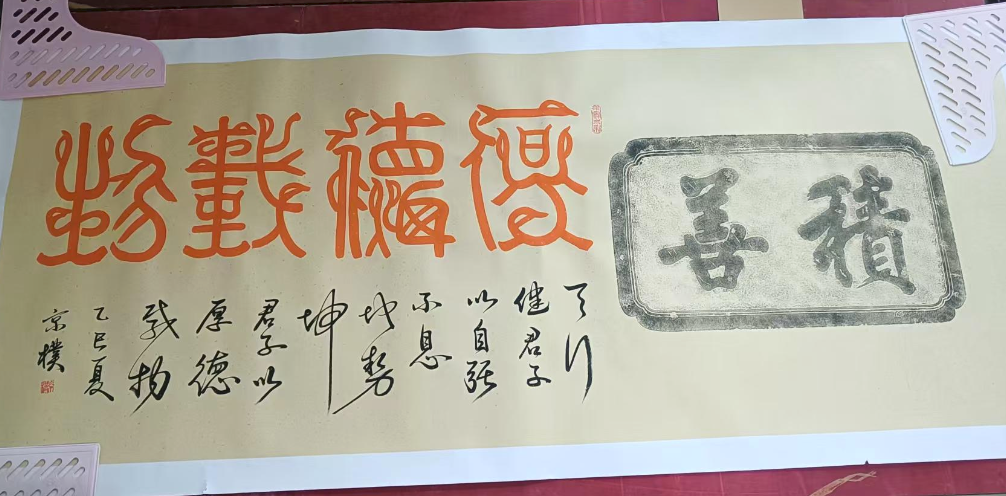 積善
厚德載物
天行
健君子
以自强
不息
地势
坤
君子以
厚德
载物
乙巳夏
京樸